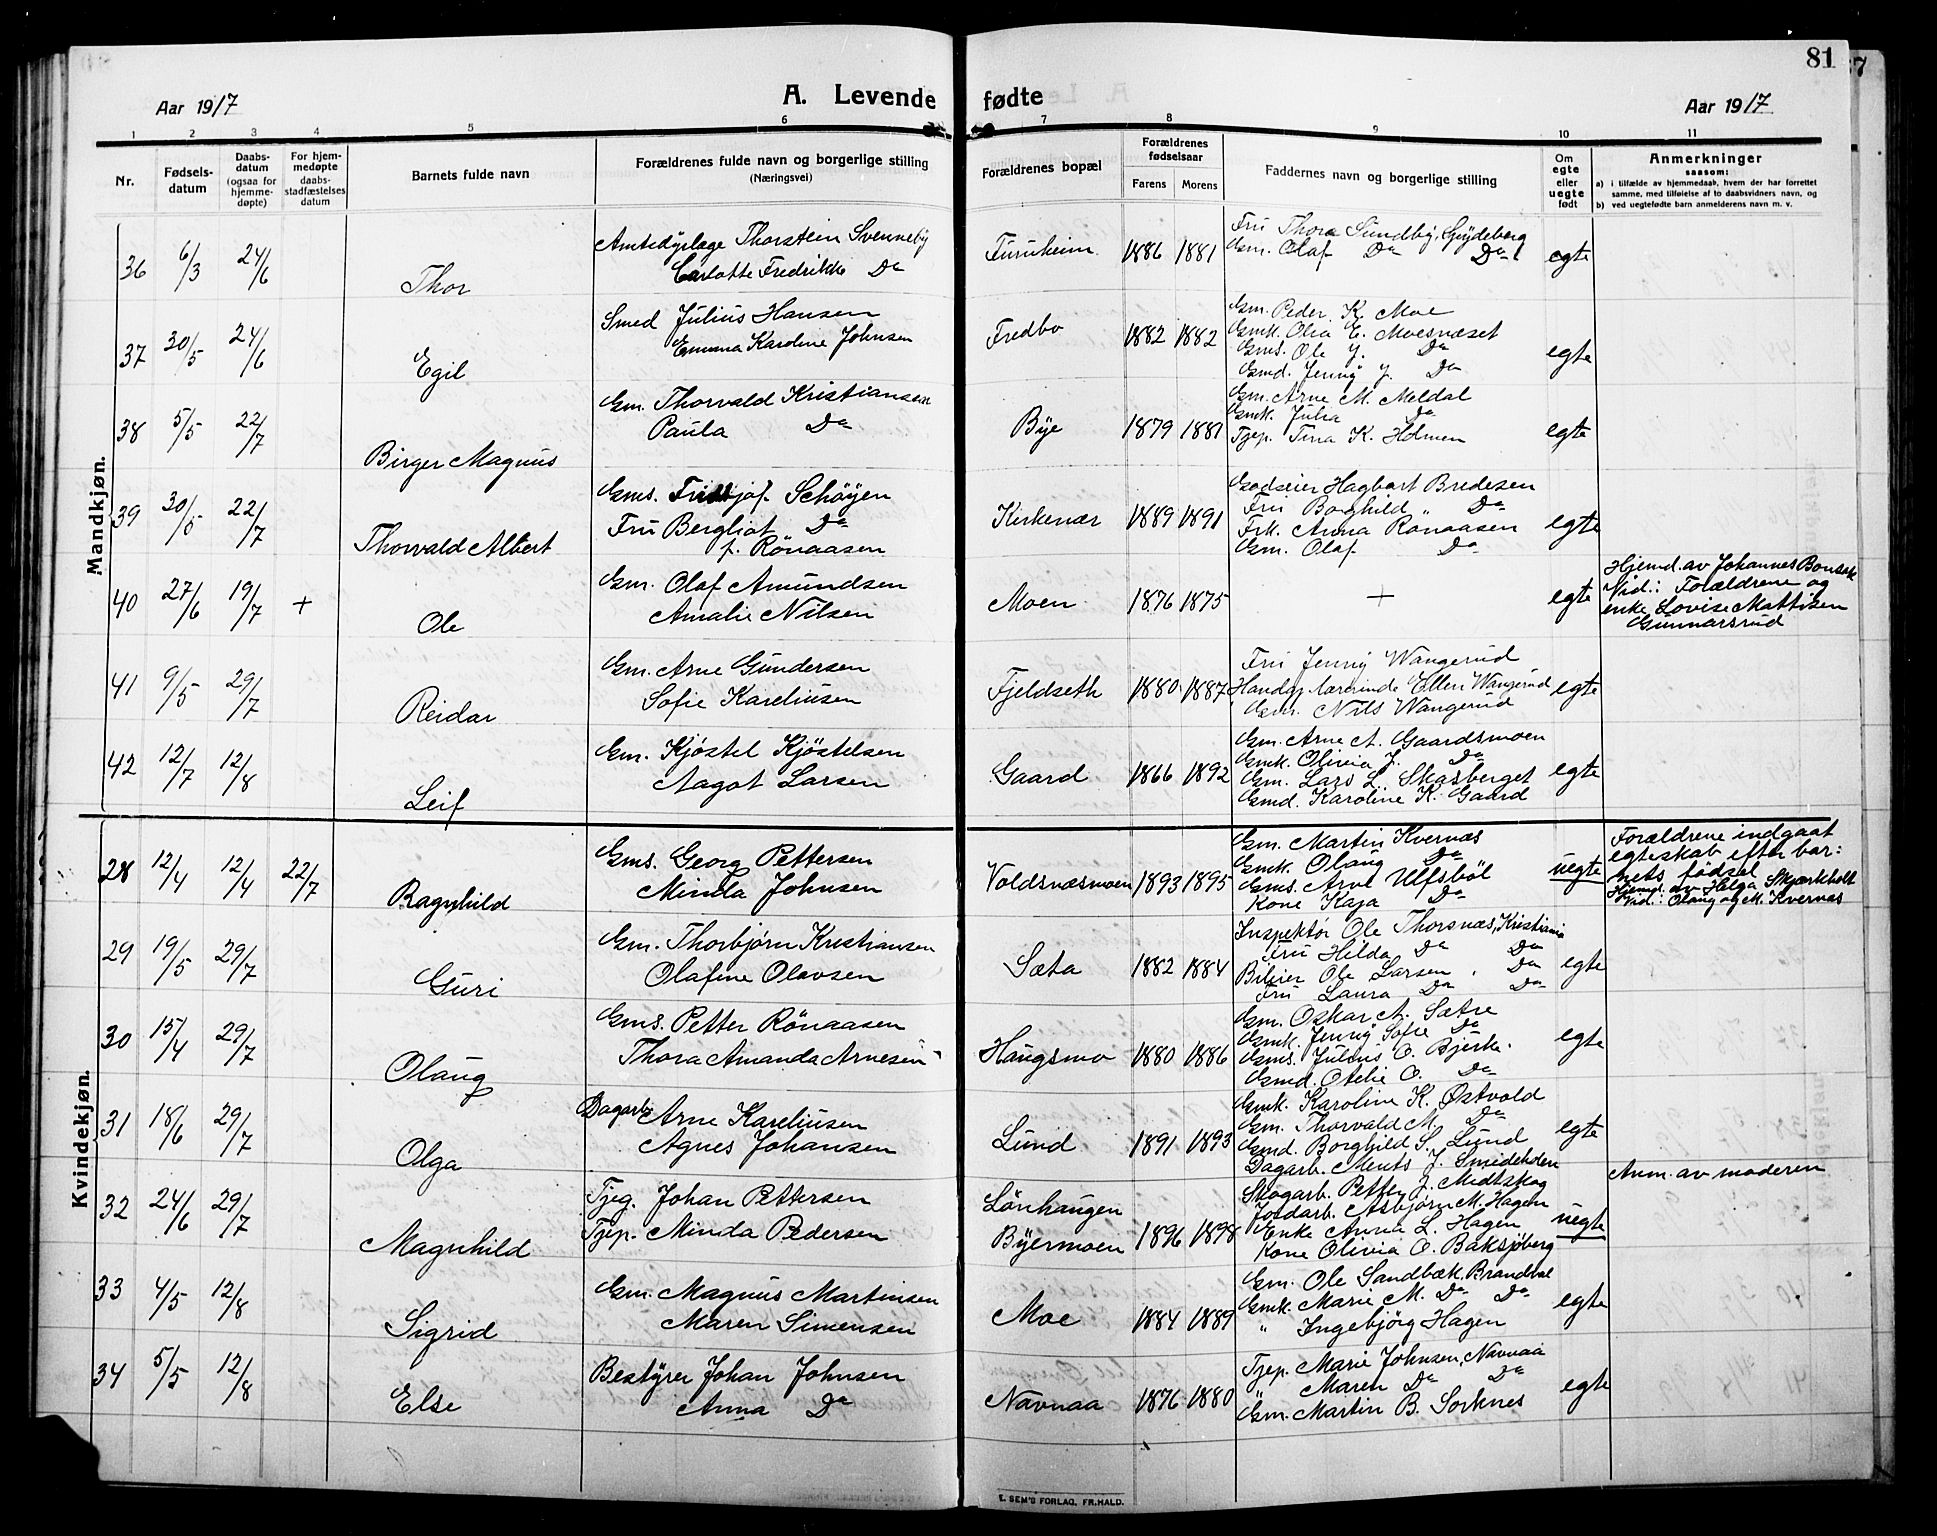 81
Aar 1917
A. Levende fødte
Aar 1917
1 2 3 4 5 6 7 8 9 10 11
Nr.
Fødsels-
datum
Daabs-
datum
(ogsaa for
hjemme-
døpte)
For hjem-
medøpte
daabs-
stadfæstelses
datum
Barnets fulde navn
Forældrenes fulde navn og borgerlige stilling
(Næringsvei)
Forældrenes bopæl
Forældrenes
fødselsaar
Farens Morens
Faddernes navn og borgerlige stilling
Om
egte
eller
uegte
født
Anmerkninger
saasom:
a) i tilfælde av hjemmedaab, hvem der har forrettet
samme, med tilføielse af to daabsvidners navn, og
b) ved uegtefødte barn anmelderens navn m. v.
Mandkjøn.
36 6/3 24/6 Thor
Amtsdyrlæge Thorstein Svenneby
Carlotte Fredrikke Do
Furuheim 1886 1881
Fru Thora Sundby, Spydeberg
Gm. Olaf Do Do
egte
37 30/5 24/6 Egil
Smed Julius Hansen
Emma Karoline Johnsen
Fredbo 1882 1882
Gm. Peder K. Moe
Gmk. Olea E. Moesnæset
Gms. Ole J. Do
Gmd. Jenny J. Do
egte
38 5/5 22/7 Birger Magnus
Gm. Thorvald Kristiansen
Paula Do
Bye 1879 1881
Gm. Arne M. Meldal
Gmk. Julia Do
Tjep. Tina K. Holmen
egte
39 30/5 22/7 Thorvald Albert
Gms. Fridtjof Schøyen
Fru Bergliot Do
f. Rønaasen
Kirkenær 1889 1891
Godseier Hagbart Bredesen
Fru Borghild " Do
Frk. Anna Rønaasen
Gm. Olaf Do
egte
40 27/6 19/7 + Ole
Gm. Olaf Amundsen
Amalie Nilsen
Moen 1876 1875
+
egte
Hjemd. av Johannes Bonsak
Vid.: Forældrene og
enke Lovise Mattisen
Gunnarsrud
41 9/5 29/7 Reidar
Gm. Arne Gundersen
Sofie Kareliusen
Fjeldseth 1880 1887
Fru Jenny Wangerud
Handg. lærerinde Ellen Wangerud
Gm. Nils Wangerud
egte
42 12/7 12/8 Leif
Gm. Kjøstel Kjøstelsen
Aagot Larsen
Gaard 1866 1892
Gm. Arne A. Gaardsmoen
Gmk. Olivia J. Do
Gm. Lars L. Skasberget
Gmd. Karoline K. Gaard
egte
Kvindekjøn.
28 12/4 12/4 22/7 Ragnhild
Gms. Georg Pettersen
Minda Johnsen
Voldsnæsmoen 1893 1895
Gm. Martin Kvernæs
Gmk. Olaug Do
Gms. Arne Ulfsbøl
Kone Kaja Do
uegte
Forældrene indgaat
egteskab efter bar:
nets fødsel
Hjemd. av Helga Skjærkholt
Vid.: Olaug og M. Kvernæs
29 19/5 29/7 Guri
Gm. Thorbjørn Kristiansen
Olafine Olavsen
Sæta 1882 1884
Inspektør Ole Thorsnæs, Kristiania
Fru Hilda Do Do
Bileier Ole Larsen, Do
Fru Laura Do Do
egte
30 15/4 29/7 Olaug
Gms. Petter Rønaasen
Thora Amanda Arnesen
Haugsmo 1880 1886
Gm. Oskar A. Sætre
Gmk. Jenny Sofie Do
Gms. Julius O. Bjerke.
Gmd. Otelie O. Do
egte
31 18/6 29/7 Olga
Dagarb. Arne Kareliusen
Agnes Johansen
Lund 1891 1893
Gmk. Karoline K. Østvold
Gm. Thorvald M. Do
Gmd. Borghild S. Lund
Dagarb. Ments J. Smedeholen
egte
32 24/6 29/7 Magnhild
Tjeg. Johan Pettersen
Tjep. Minda Pedersen
Lønhaugen
Byermoen 1896 1898
Skogarb. Petter J. Midtskog
Jordarb. Asbjørn M. Hagen
Enke Anna L. Hagen
Kone Olivia O. Baksjøberg
uegte
Anm. av moderen
33 4/5 12/8 Sigrid
Gm. Magnus Martinsen
Maren Simensen
Moe 1884 1889
Gm. Ole Sandbæk, Brandval
Gmk. Marie M. Do Do
" Ingebjørg Hagen
egte
34 5/5 12/8 Else
Bestyrer Johan Johnsen
Anna Do
Navnaa 1876 1880
Tjep. Marie Johnsen, Navnaa
" Maren Do Do
Gm. Martin B. Sorknes
egte
E. SEM'S FORLAG, FR.HALD.